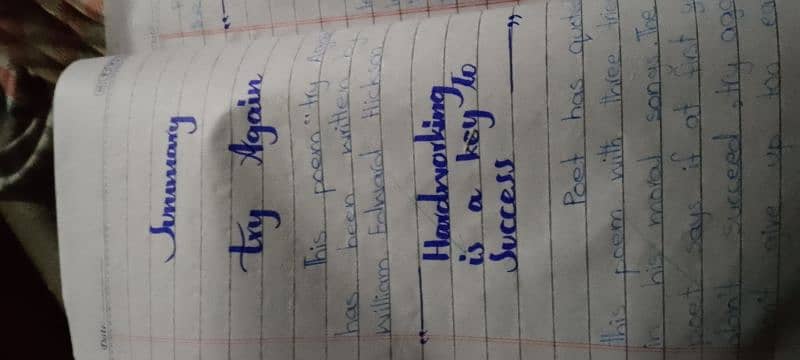 Date
Summary
Try Again
This poem "Try Again
has been written by
William Edward Hickson
"Hardworking
is a key to
Success"
Poet has quote
this poem with three
in his moral songs. The
poet says if at first y
don't succeed, try aga
give up too